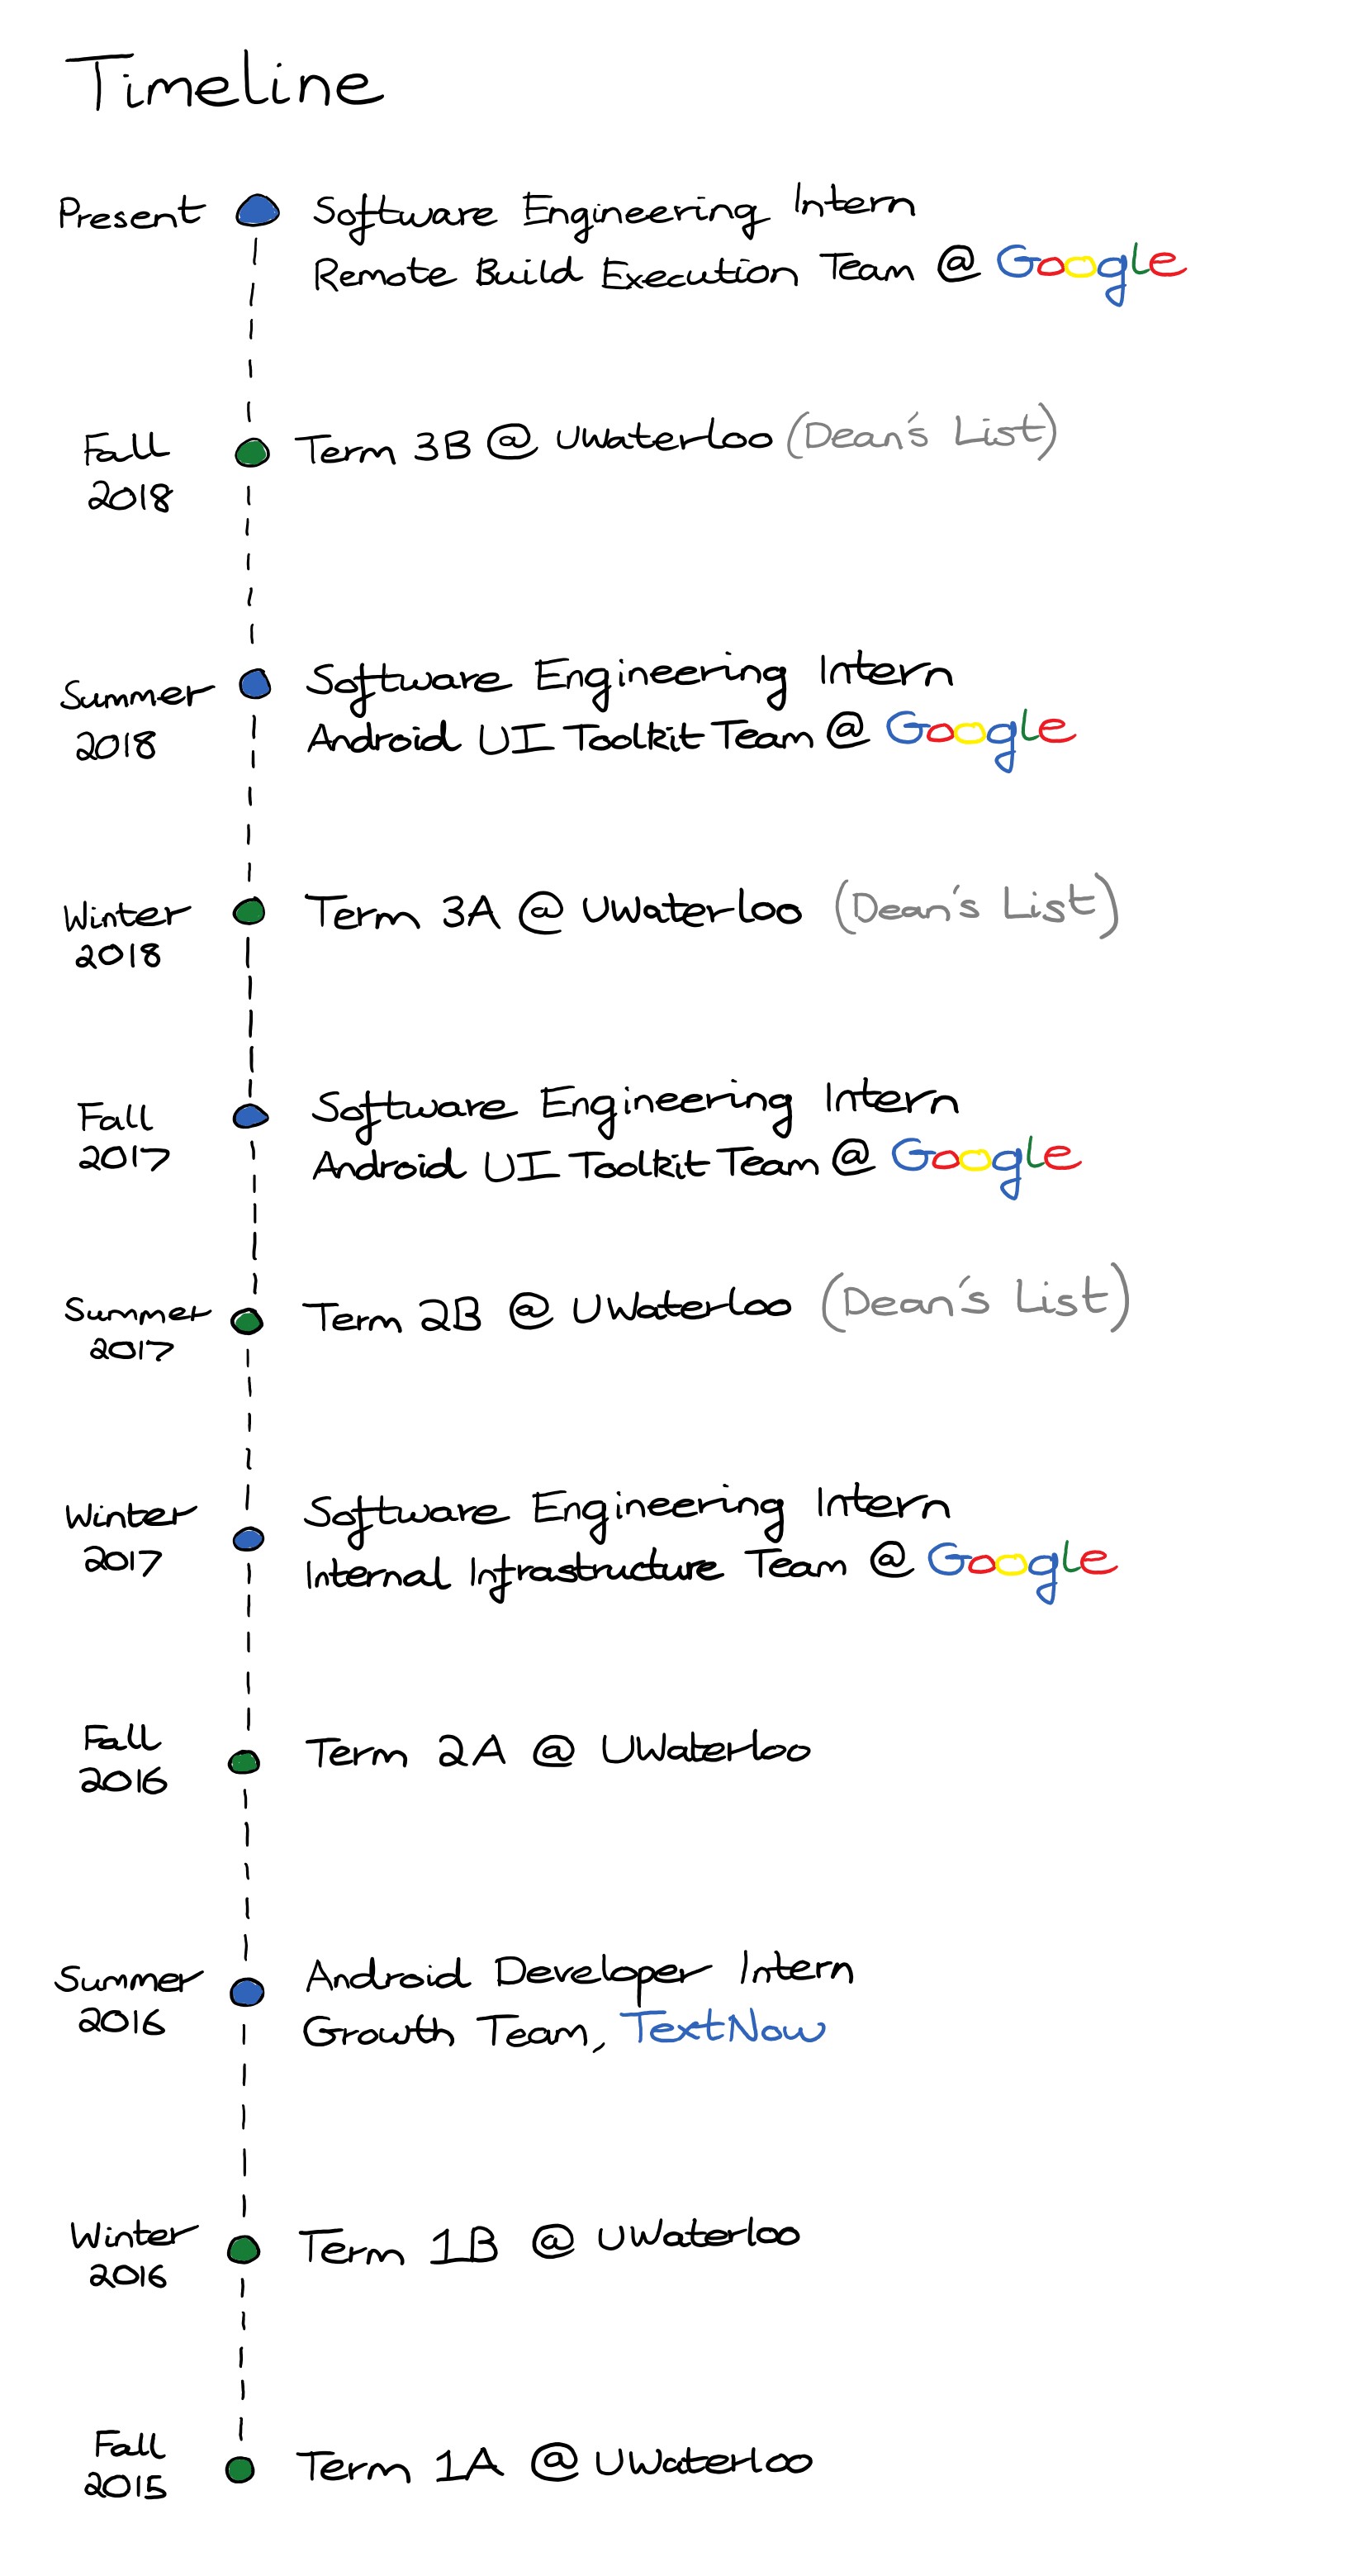 Timeline
Present
Software Engineering Intern
Remote Build Execution Team @ Google
Fall
2018
Term 3B @ UWaterloo (Dean's List)
Summer
2018
Software Engineering Intern
Android UI Toolkit Team @ Google
Winter
2018
Term 3A @ UWaterloo (Dean's List)
Fall
2017
Software Engineering Intern
Android UI Toolkit Team @ Google
Summer
2017
Term 2B @ UWaterloo (Dean's List)
Winter
2017
Software Engineering Intern
Internal Infrastructure Team @ Google
Fall
2016
Term 2A @ UWaterloo
Summer
2016
Android Developer Intern
Growth Team, TextNow
Winter
2016
Term 1B @ UWaterloo
Fall
2015
Term 1A @ UWaterloo